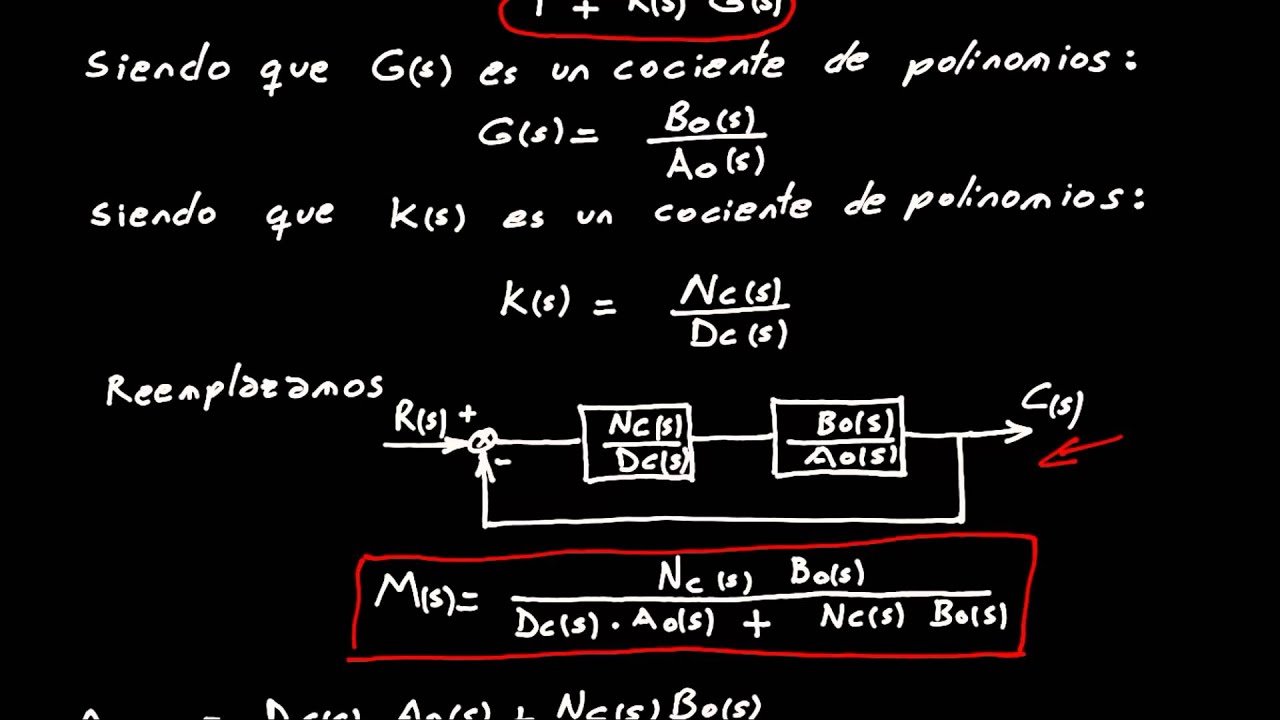 1 + K(s) G(s)
Siendo que G(s) es un cociente de polinomios:
G(s) = Bo(s)
Ao(s)
Siendo que K(s) es un cociente de polinomios:
K(s) = Nc(s)
Dc(s)
Reemplazamos
R(s) + - Nc(s) Bo(s) C(s)
Dc(s) Ao(s)
M(s) = Nc(s) Bo(s)
Dc(s) · Ao(s) + Nc(s) Bo(s)
= Dc(s) Ao(s) + Nc(s) Bo(s)